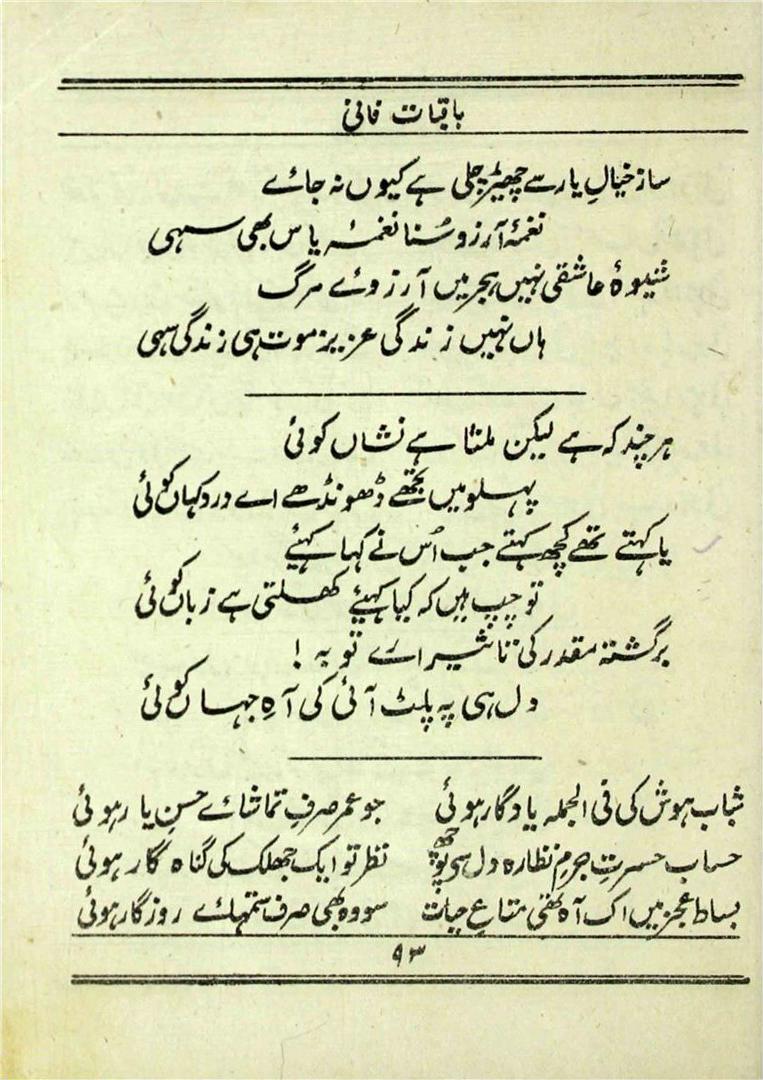 باقیات فانی
ساز خیالِ یار سے چھیڑ چلی ہے کیوں نہ جائے
نغمۂ آرزو سُنا نغمۂ یاس بھی سہی
شیوۂ عاشقی نہیں ہجر میں آرزوئے مرگ
ہاں نہیں زندگی عزیز موت ہی زندگی سہی
ہر چند کہ ہے لیکن ملتا ہے نشاں کوئی
پہلو میں تجھے ڈھونڈھے اے درد کہاں کوئی
یا کہتے تھے کچھ کہتے جب اُس نے کہا کہئے
تو چپ ہیں کہ کیا کہئے کھلتی ہے زباں کوئی
برگشتہ مقدر کی تاثیر ارے توبہ!
دل ہی پہ پلٹ آئی کی آہ جہاں کوئی
شباب ہوش کی فی الجملہ یادگار ہوئی جو عمر صرفِ تماشائے حسنِ یار ہوئی
حساب حسرتِ جرمِ نظارہ دل سی پوچھ نظر تو ایک جھلک کی گناہ گار ہوئی
بساط عجز میں اک آہ تھی متاعِ حیات سو وہ بھی صرف ستمہائے روزگار ہوئی
۹۳